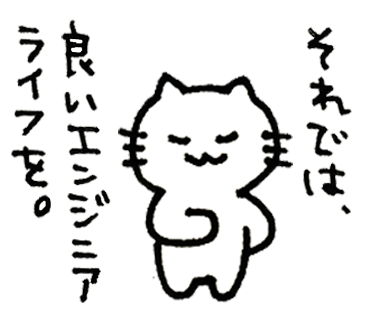 それでは、
良いエンジニア
ライフを。